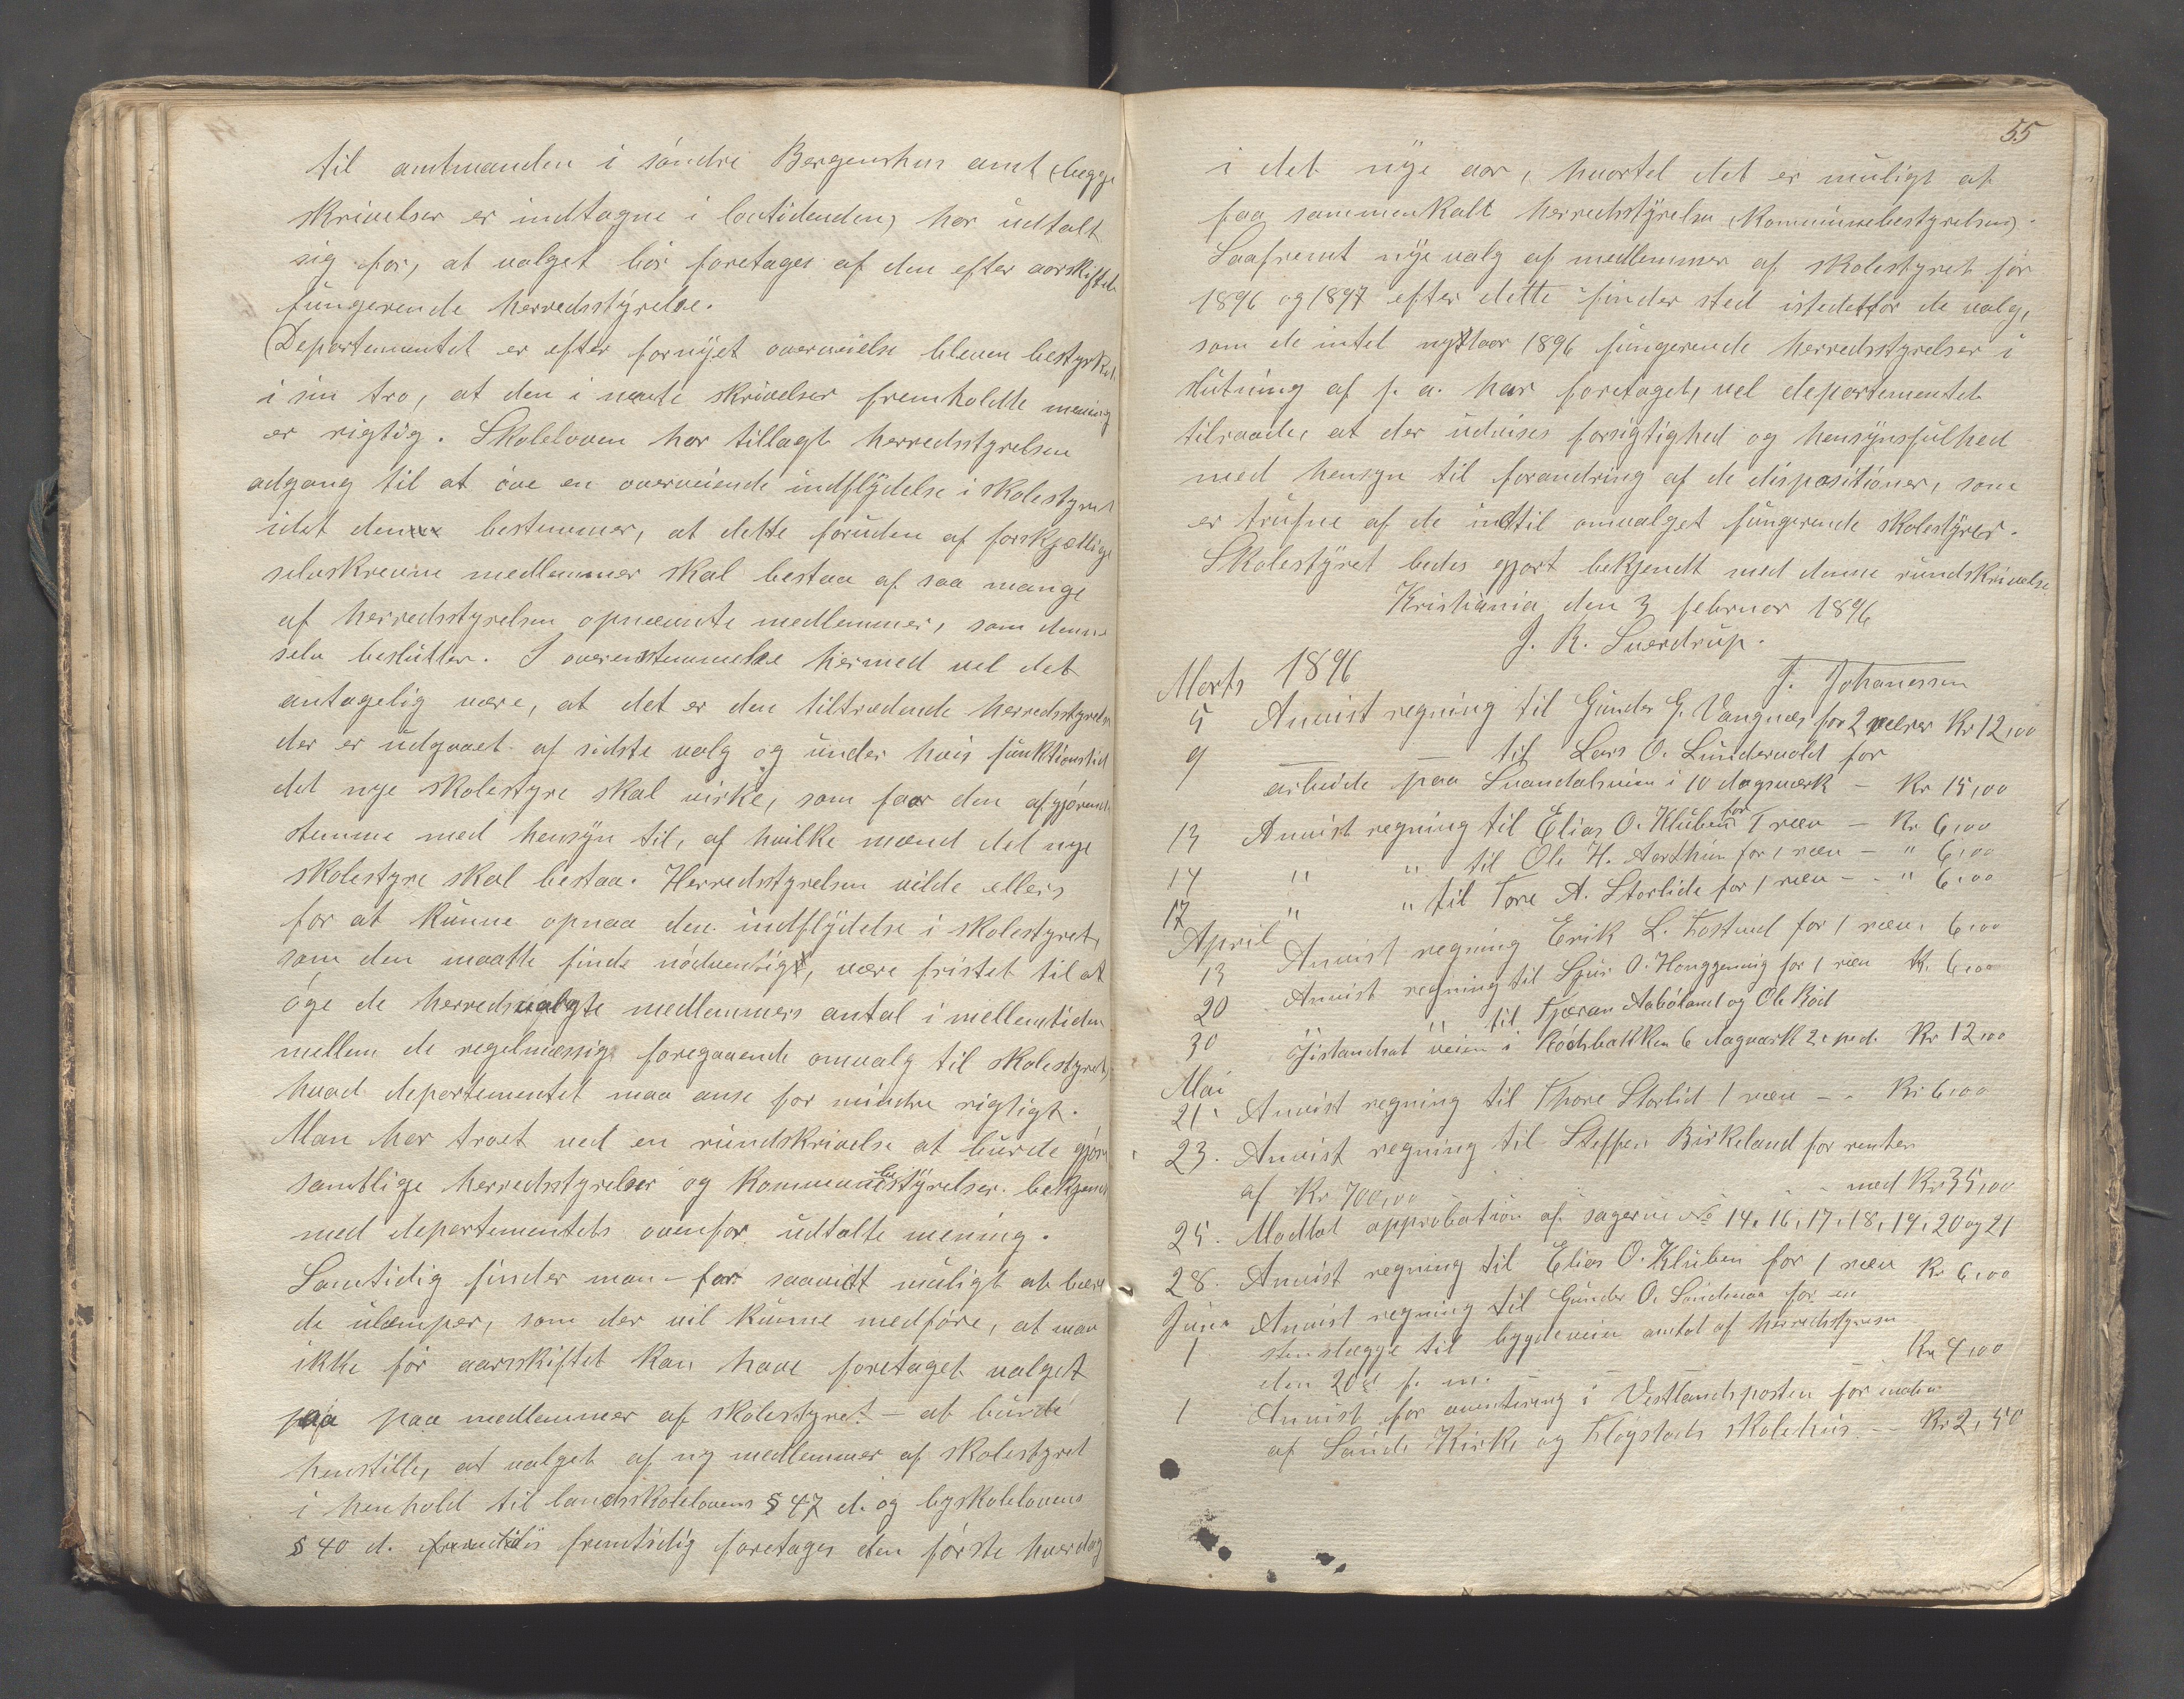 til amtmanden i søndre Bergenshus amt (begge
skrivelser er indtagne i lovtidenden) har udtalt
sig for, at valget bør foretages af den efter aarskiftet
fungerende herredsstyrelse.
Departementet er efter fornyet overveielse bleven bestyrket
i sin tro, at den i nevnte skrivelser fremholdte mening
er rigtig. Skoleloven har tillagt herredsstyrelsen
adgang til at øve en overveiende indflydelse i skolestyret
idet denne bestemmer, at dette foruden af forskjællige
selvskrevne medlemmer skal bestaa af saa mange
af herredsstyrelsen opnævnte medlemmer, som denne
selv beslutter. I overensstemmelse hermed vel det
antagelig være, at det er den tiltrædende herredsstyrelse
der er udgaaet af sidste valg og under hvis funktionstid
det nye skolestyre skal virke, som faar den afgjørende
stemme med hensyn til, af hvilke mænd det nye
skolestyre skal bestaa. Herredsstyrelsen vilde ellers
for at kunne opnaa den indflydelse i skolestyret,
som den maatte finde nødvendigt, være fristet til at
øge de herredsvalgte medlemmers antal i mellemtiden
mellem de regelmæssige foregaaende omvalg til skolestyret,
hvad departementet maa anse for mindre rigtigt.
Man har troet ved en rundskrivelse at burde gjøre
samtlige herredsstyrelser og kommunebestyrelser bekjendt
med departementets ovenfor udtalte mening.
Samtidig finder man – for saavidt muligt at bøde
de ulæmper, som der vil kunne medføre, at man
ikke før aarsskiftet kan have foretaget valget
paa paa medlemmer af skolestyret – at burde
henstille, at valget af ny medlemmer af skolestyret
i henhold til landsskolelovens § 47 d. og byskolelovens
§ 40 d. fremtidig foretages den første hverdag
55
i det nye aar, hvortil det er muligt at
faa sammenkalt herredsstyrelsen (kommunebestyrelsen).
Saafremt nye valg af medlemmer af skolestyret for
1896 og 1897 efter dette finder sted istedetfor de valg,
som de indtil nytaar 1896 fungerende herredsstyrelser i
slutning af f. a. har foretaget, vel departementet
tilraade, at der udvises forsigtighed og hensynsfulhed
med hensyn til forandring af de dispositioner, som
er trufne af de indtil omvalget fungerende skolestyrer.
Skolestyret bedes gjort bekjendt med denne rundskrivelse
Kristiania den 3 februar 1896
J. R. Sverdrup.
J. Johanessen
Marts 1896
5 Anvist regning til Gunder G. Vangnæs for 2 ræver Kr 12,00
9 — — til Lars O. Lundervold for
arbeide paa Svandalsveien i 10 dagsværk – Kr 15,00
13 Anvist regning til Elias O. Kluben for 1 ræv – Kr 6,00
14 " " til Ole H. Aarthun for 1 ræv – " 6,00
17 " " til Tore A. Storlide for 1 ræv – " 6,00
April
13 Anvist regning Erik L. Fostved for 1 ræv. 6,00
20 Anvist regning til Sjur O. Honggenvig for 1 ræv Kr. 6,00
30 " til Tjeran Aabøland og Ole Rød
Istandsat veien i Rødsbakken 6 dagværk 2. nød. Kr 12,00
Mai
21. Anvist regning til Thore Storlid 1 ræv – Kr 6,00
23. Anvist regning til Steffen Birkeland for renter
af Kr 700,00 med Kr 35,00
25. Modtat approbation af sagerne No 14, 16, 17, 18, 19, 20 og 21
28. Anvist regning til Elias O. Kluben for 1 ræv Kr 6,00
Juni Anvist regning til Gunder O. Sandenaa for en
1. stenslægge til bygdeveien antat af herredsstyrelsen
den 20de f. m. – – – Kr 4,00
1 Anvist for avertering i Vestlandsposten for maling
af Saude Kirke og Fløgstads skolehus – Kr 2,50